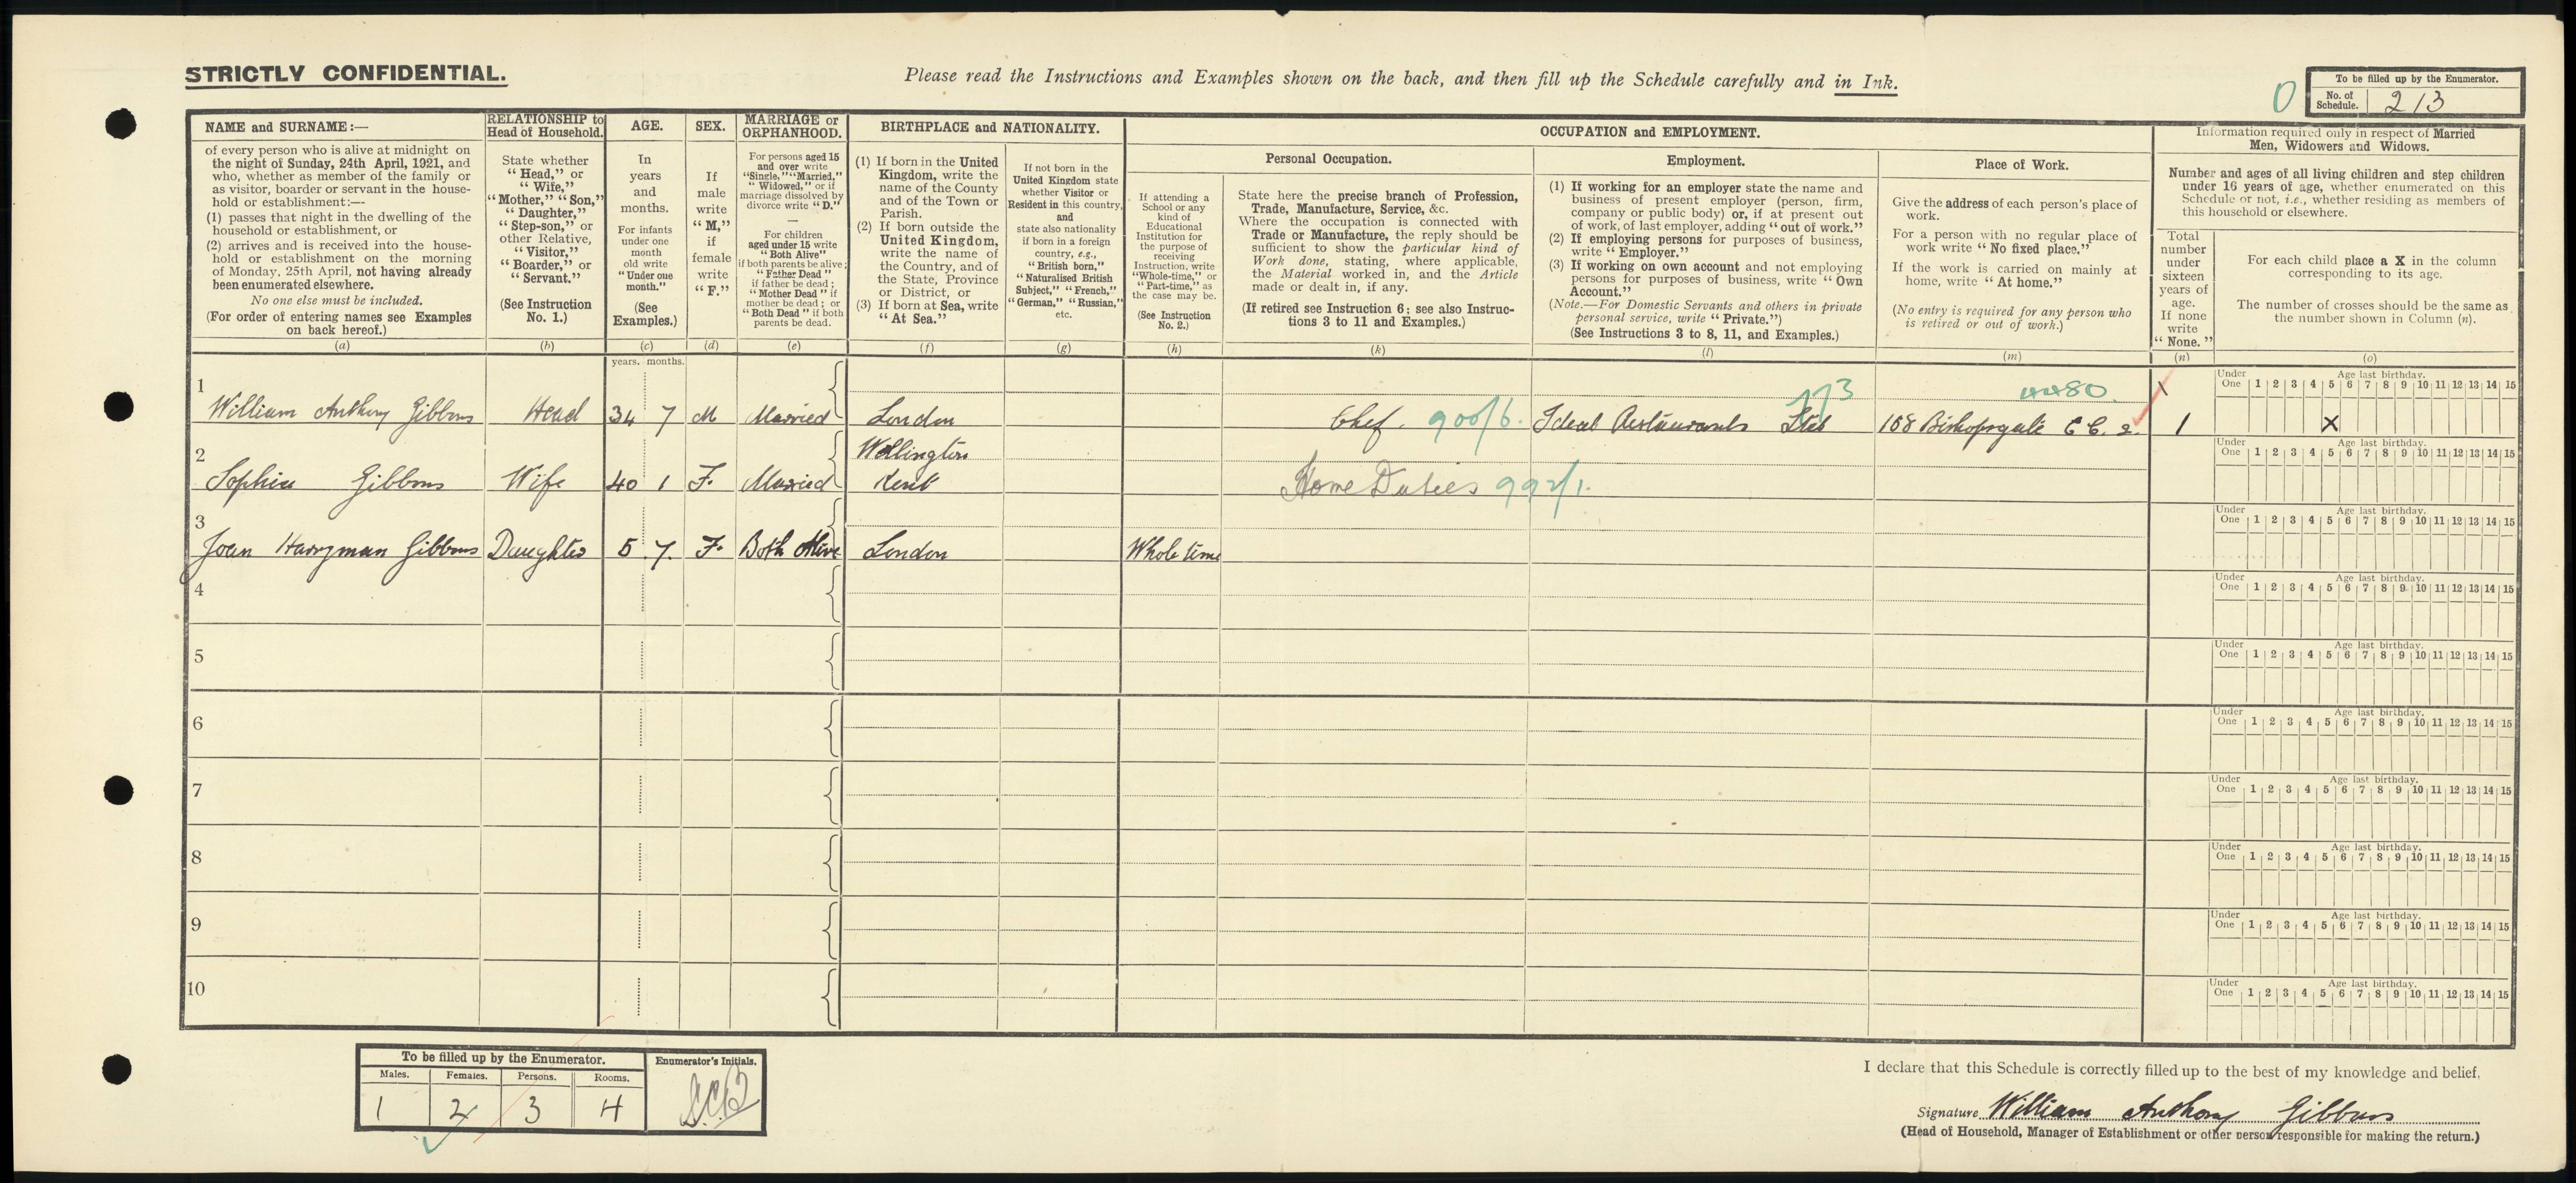 STRICTLY CONFIDENTIAL.
Please read the Instructions and Examples shown on the back, and then fill up the Schedule carefully and in Ink.
0
To be filled up by the Enumerator.
No. of Schedule. 213
NAME and SURNAME:—
of every person who is alive at midnight on
the night of Sunday, 24th April, 1921, and
who, whether as member of the family or
as visitor, boarder or servant in the house-
hold or establishment:—
(1) passes that night in the dwelling of the
household or establishment, or
(2) arrives and is received into the house-
hold or establishment on the morning
of Monday, 25th April, not having already
been enumerated elsewhere.
No one else must be included.
(For order of entering names see Examples
on back hereof.)
(a)
RELATIONSHIP to
Head of Household.
State whether
"Head," or
"Wife,"
"Mother," "Son,"
"Daughter,"
"Step-son," or
other Relative,
"Visitor,"
"Boarder," or
"Servant."
(See Instruction
No. 1.)
(b)
AGE.
In
years
and
months.
For infants
under one
month
old write
"Under one
month."
(See
Examples.)
(c)
SEX.
If
male
write
"M,"
if
female
write
"F."
(d)
MARRIAGE or
ORPHANHOOD.
For persons aged 15
and over write
"Single," "Married,"
"Widowed," or if
marriage dissolved by
divorce write "D."
—
For children
aged under 15 write
"Both Alive"
if both parents be alive;
"Father Dead"
if father be dead;
"Mother Dead" if
mother be dead; or
"Both Dead" if both
parents be dead.
(e)
BIRTHPLACE and NATIONALITY.
(1) If born in the United
Kingdom, write the
name of the County
and of the Town or
Parish.
(2) If born outside the
United Kingdom,
write the name of
the Country, and of
the State, Province
or District, or
(3) If born at Sea, write
"At Sea."
(f)
If not born in the
United Kingdom state
whether Visitor or
Resident in this country,
and
state also nationality
if born in a foreign
country, e.g.,
"British born,"
"Naturalised British
Subject," "French,"
"German," "Russian,"
etc.
(g)
OCCUPATION and EMPLOYMENT.
Personal Occupation.
If attending a
School or any
kind of
Educational
Institution for
the purpose of
receiving
Instruction, write
"Whole-time," or
"Part-time," as
the case may be.
(See Instruction
No. 2.)
(h)
State here the precise branch of Profession,
Trade, Manufacture, Service, &c.
Where the occupation is connected with
Trade or Manufacture, the reply should be
sufficient to show the particular kind of
Work done, stating, where applicable,
the Material worked in, and the Article
made or dealt in, if any.
(If retired see Instruction 6; see also Instruc-
tions 3 to 11 and Examples.)
(k)
Employment.
(1) If working for an employer state the name and
business of present employer (person, firm,
company or public body) or, if at present out
of work, of last employer, adding "out of work."
(2) If employing persons for purposes of business,
write "Employer."
(3) If working on own account and not employing
persons for purposes of business, write "Own
Account."
(Note.—For Domestic Servants and others in private
personal service, write "Private.")
(See Instructions 3 to 8, 11, and Examples.)
(l)
Place of Work.
Give the address of each person's place of
work.
For a person with no regular place of
work write "No fixed place."
If the work is carried on mainly at
home, write "At home."
(No entry is required for any person who
is retired or out of work.)
(m)
Information required only in respect of Married
Men, Widowers and Widows.
Number and ages of all living children and step children
under 16 years of age, whether enumerated on this
Schedule or not, i.e., whether residing as members of
this household or elsewhere.
Total
number
under
sixteen
years of
age.
If none
write
"None."
(n)
For each child place a X in the column
corresponding to its age.
The number of crosses should be the same as
the number shown in Column (n).
(o)
years. months.
1
William Anthony Gibbons Head 34 7 M Married London Chef. 900/6. Ideal Restaurants Ltd 158 Bishopsgate E C. 2. 1 X
4480.
Under One 1 2 3 4 5 6 7 8 9 10 11 12 13 14 15
Age last birthday.
2
Wellington
Sophia Gibbons Wife 40 1 F. Married Kent Home Duties 992/1.
Under One 1 2 3 4 5 6 7 8 9 10 11 12 13 14 15
Age last birthday.
3
Joan Harryman Gibbons Daughter 5 7. F. Both Alive London Whole time
Under One 1 2 3 4 5 6 7 8 9 10 11 12 13 14 15
Age last birthday.
4
Under One 1 2 3 4 5 6 7 8 9 10 11 12 13 14 15
Age last birthday.
5
Under One 1 2 3 4 5 6 7 8 9 10 11 12 13 14 15
Age last birthday.
6
Under One 1 2 3 4 5 6 7 8 9 10 11 12 13 14 15
Age last birthday.
7
Under One 1 2 3 4 5 6 7 8 9 10 11 12 13 14 15
Age last birthday.
8
Under One 1 2 3 4 5 6 7 8 9 10 11 12 13 14 15
Age last birthday.
9
Under One 1 2 3 4 5 6 7 8 9 10 11 12 13 14 15
Age last birthday.
10
Under One 1 2 3 4 5 6 7 8 9 10 11 12 13 14 15
Age last birthday.
To be filled up by the Enumerator.
Males. Females. Persons. Rooms.
1 2 3 4
Enumerator's Initials.
I declare that this Schedule is correctly filled up to the best of my knowledge and belief.
Signature William Anthony Gibbons
(Head of Household, Manager of Establishment or other person responsible for making the return.)